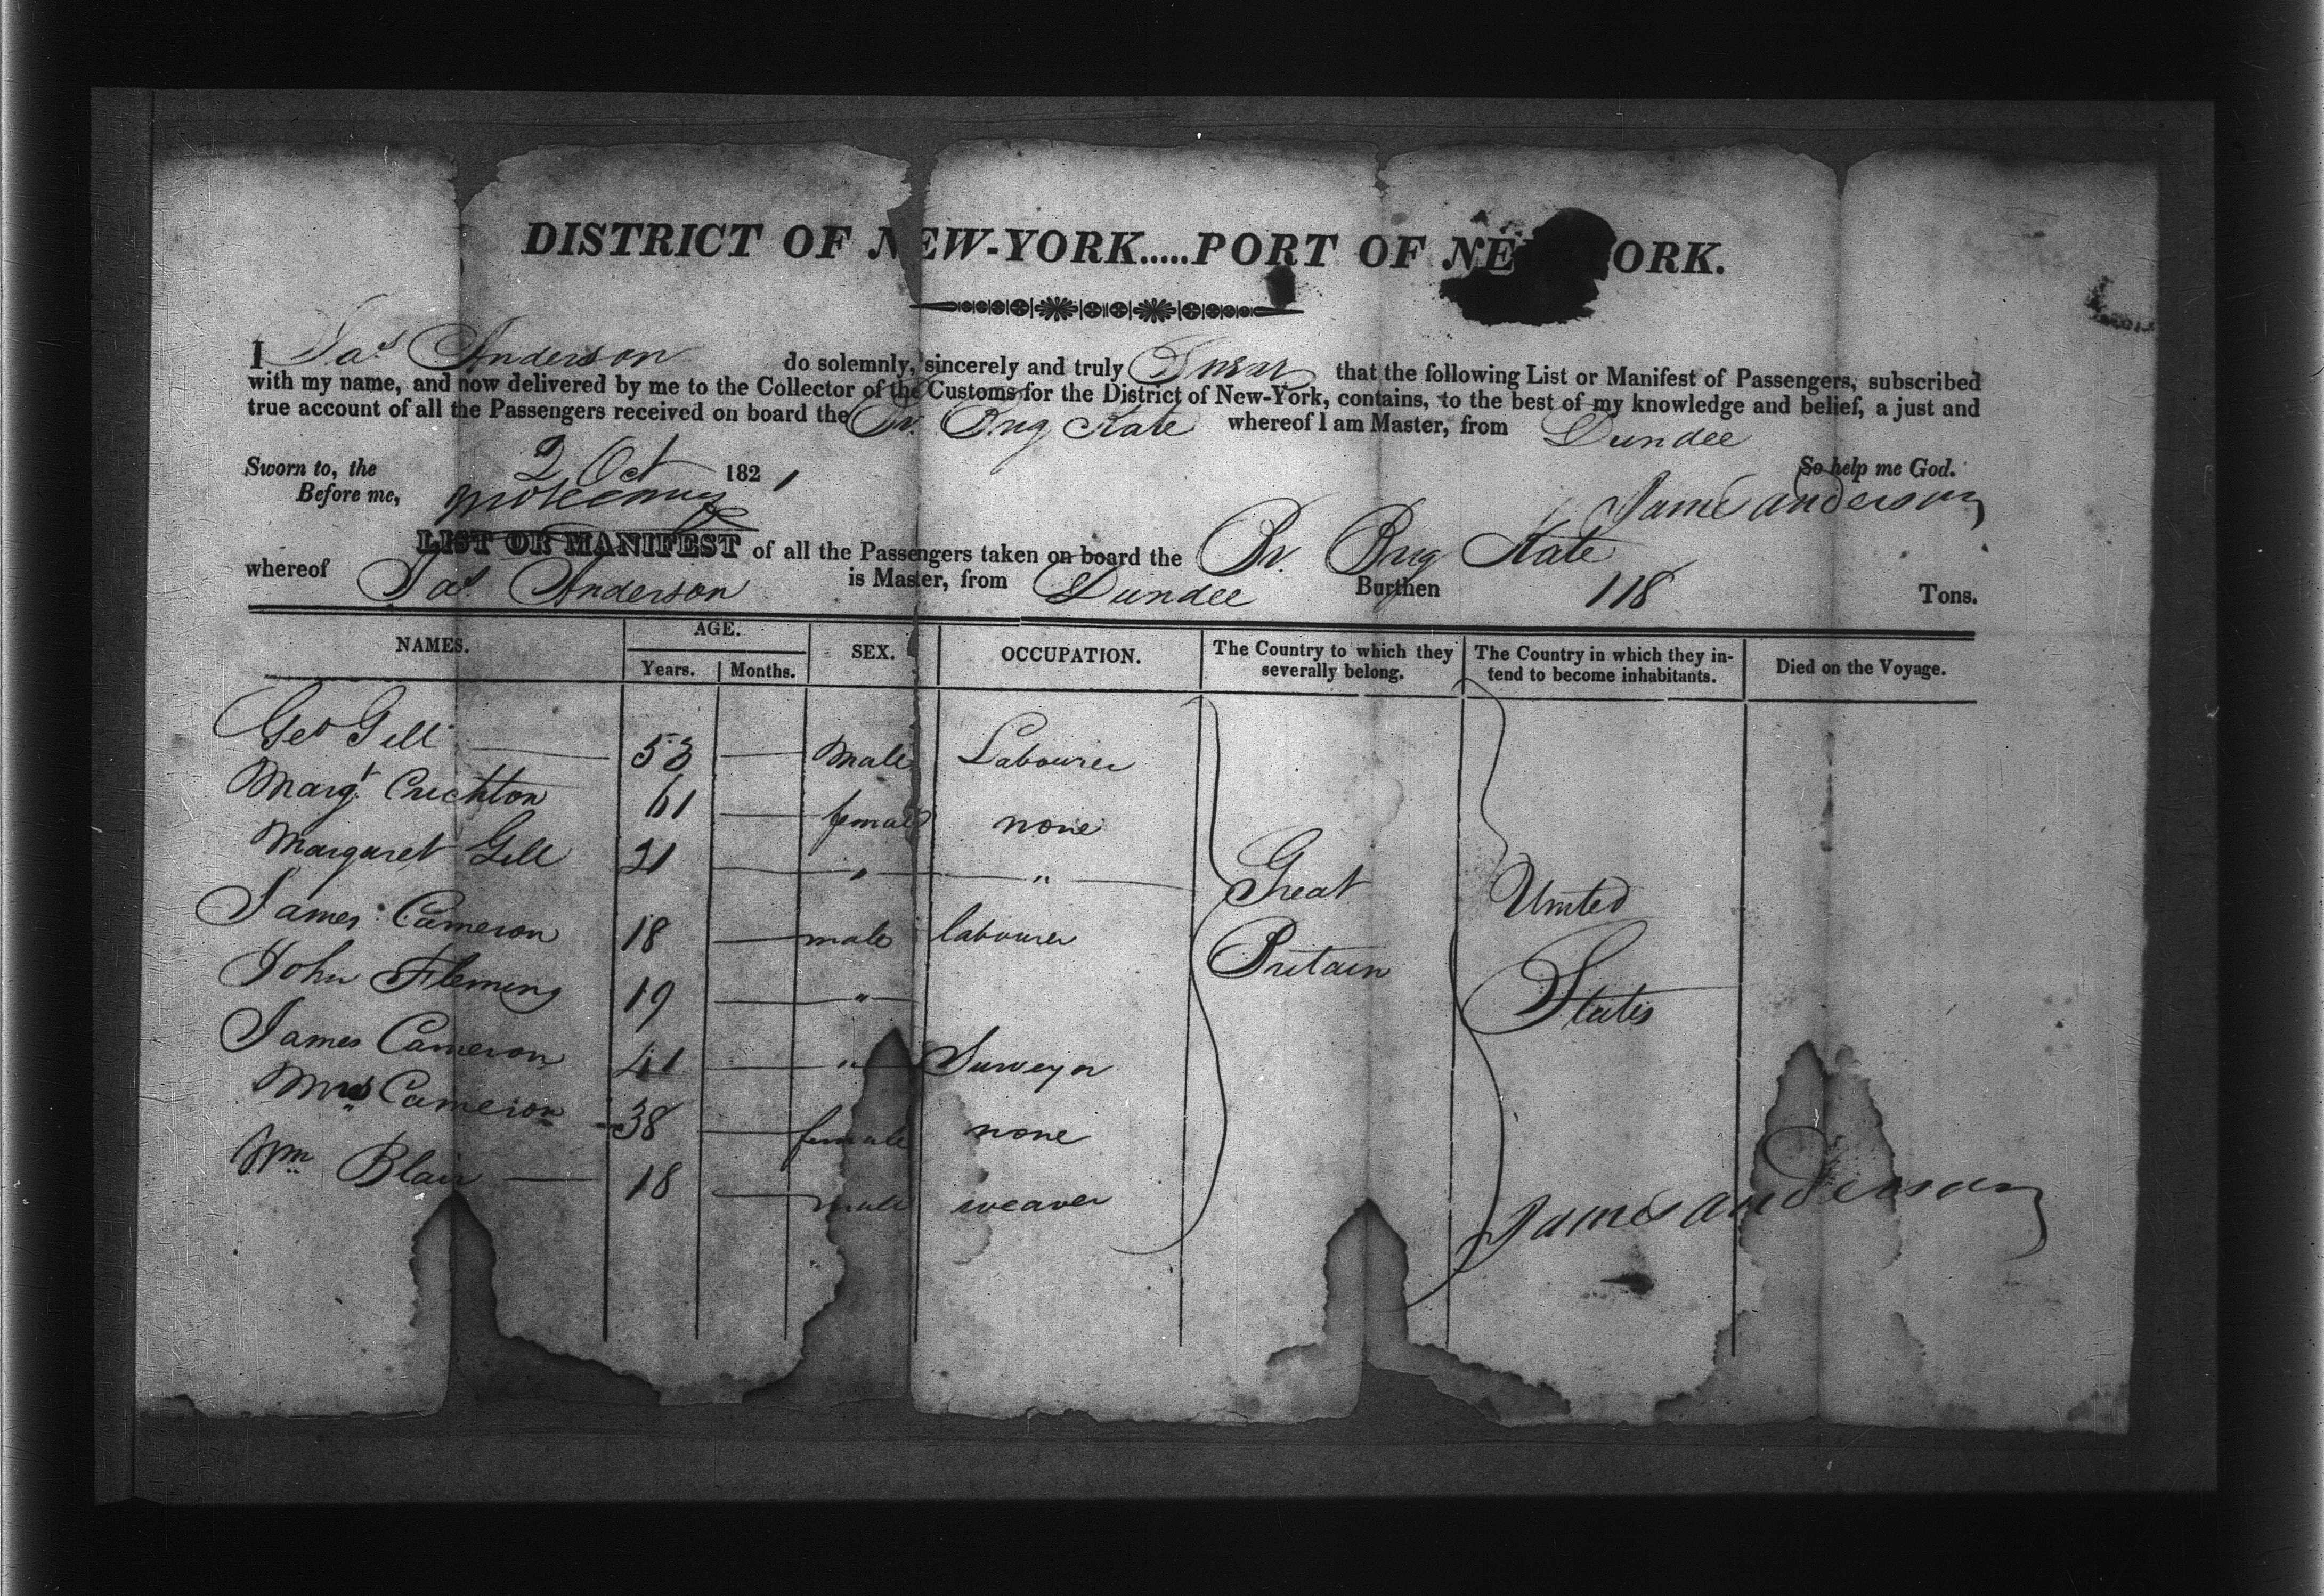 DISTRICT OF NEW-YORK.....PORT OF NE ORK.
I Jas Anderson do solemnly, sincerely and truly Swear that the following List or Manifest of Passengers, subscribed
with my name, and now delivered by me to the Collector of the Customs for the District of New-York, contains, to the best of my knowledge and belief, a just and
true account of all the Passengers received on board the Br. Brig Kate whereof I am Master, from Dundee
Sworn to, the 2 Oct 1821 So help me God.
Before me, James anderson
LIST OR MANIFEST of all the Passengers taken on board the Br. Brig Kate
whereof Jas. Anderson is Master, from Dundee Burthen 118 Tons.
NAMES. AGE. Years. Months. SEX. OCCUPATION. The Country to which they severally belong. The Country in which they in-tend to become inhabitants. Died on the Voyage.
Geo Gill 53 male Labourer
Margt Crichton 61 female none
Margaret Gill 21 " "
James Cameron 18 male labourer
John Fleming 19 "
James Cameron 41 " Surveyor
Mrs Cameron 38 female none
Wm Blair 18 male weaver
Great Britain
United States
James anderson